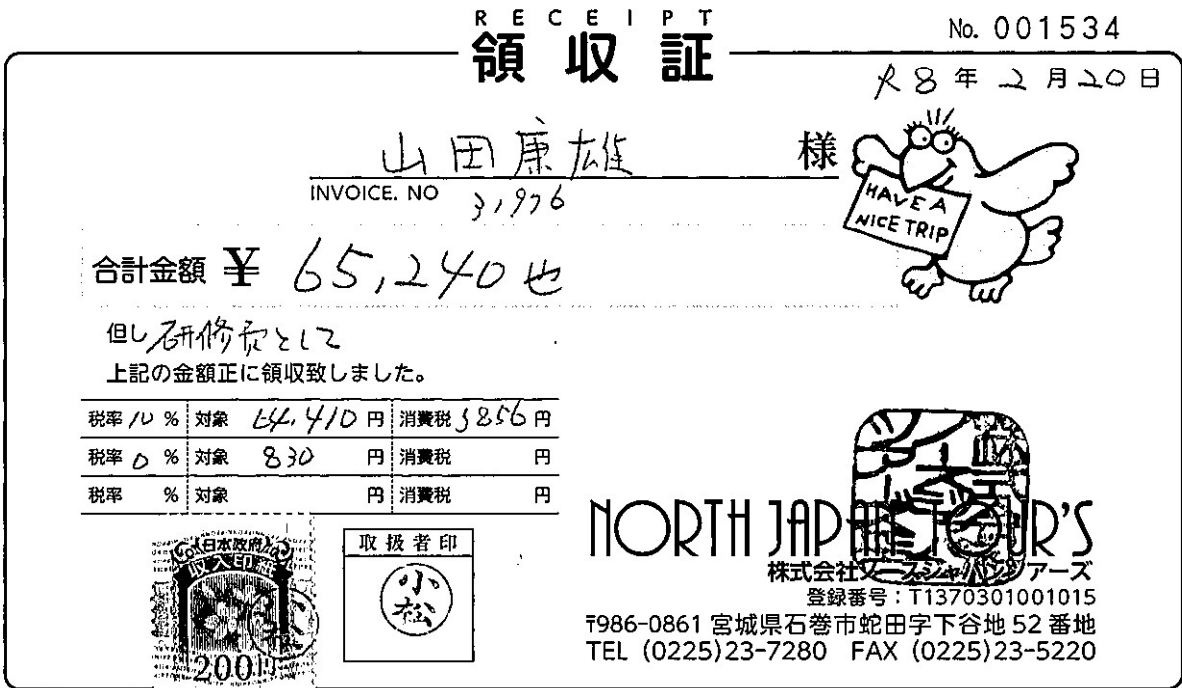 RECEIPT
領収証
No. 001534
R8年2月20日
山田康雄 様
INVOICE. NO 3,976
HAVE A
NICE TRIP
合計金額 ¥ 65,240也
但し 研修費として
上記の金額正に領収致しました。
税率10% 対象 64,410円 消費税5856円
税率0% 対象 830円 消費税 円
税率 % 対象 円 消費税 円
日本政府
収入印紙
200円
取扱者印
小松
NORTH JAPAN TOUR'S
株式会社ノースジャパンツアーズ
登録番号:T1370301001015
〒986-0861 宮城県石巻市蛇田字下谷地52番地
TEL (0225)23-7280 FAX (0225)23-5220